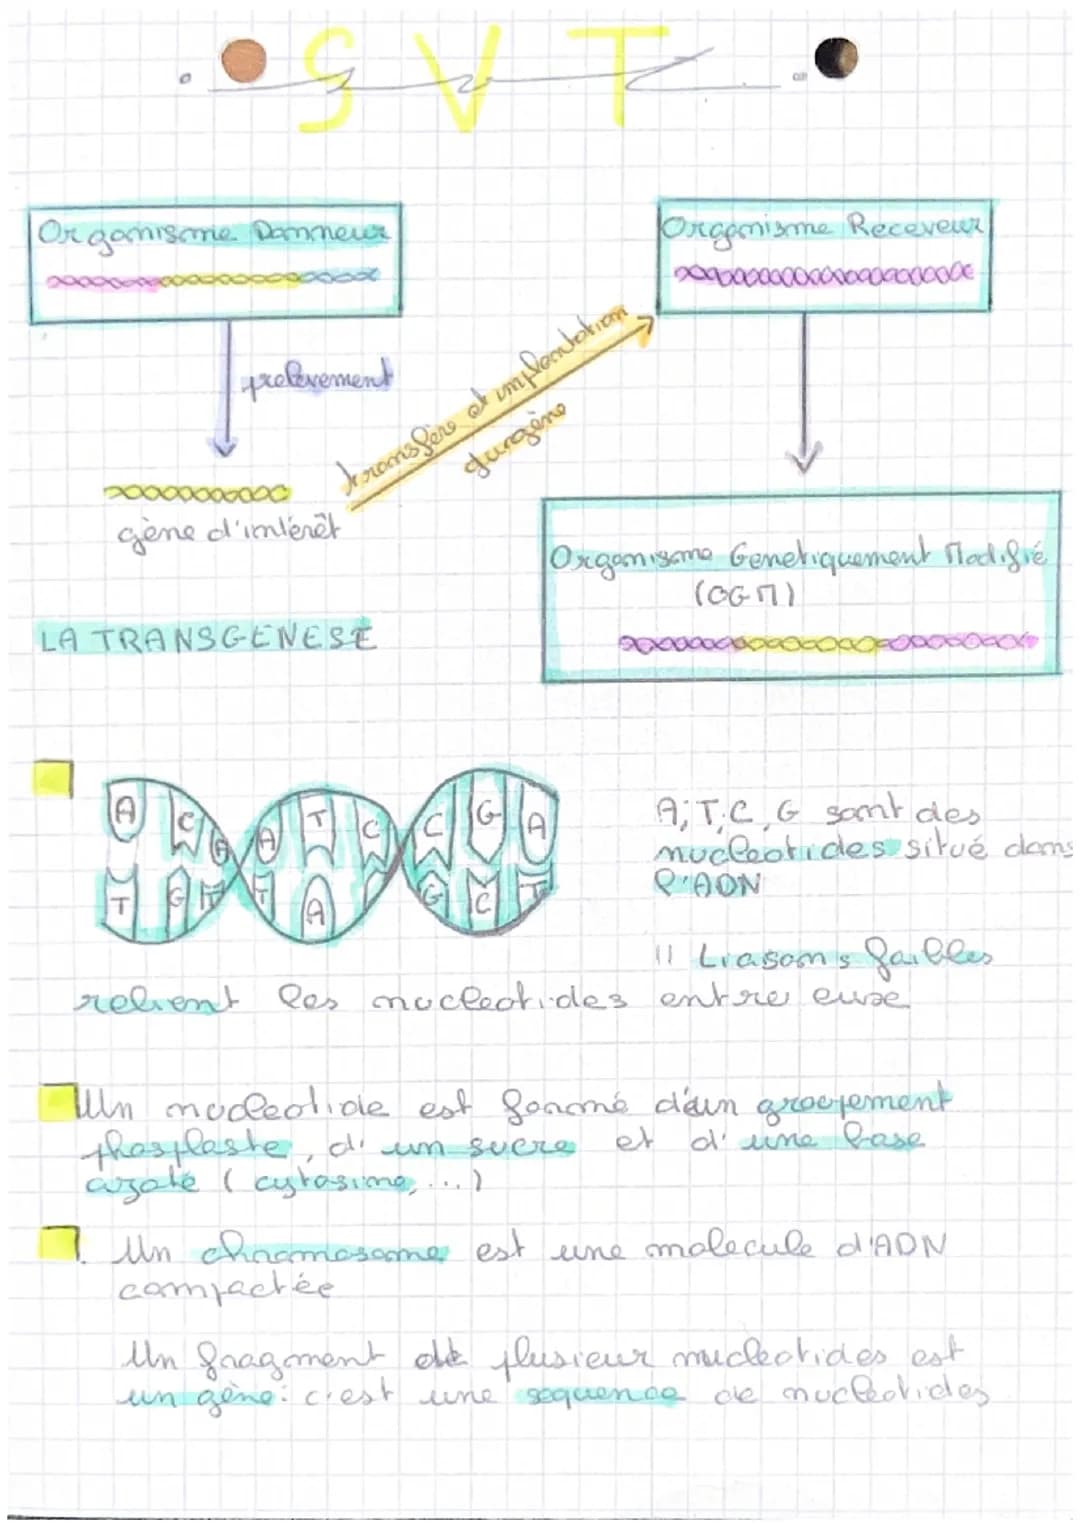 SVT
Organisme Donneur
Organisme Receveur
prelevement
transfère et implantation
du gène
gène d'intérêt
Organisme Genetiquement Modifié
(OGM)
LA TRANSGENESE
A C A A T C C G A
T G T T A G C T
A, T, C, G sont des
nucleotides situé dans
l'ADN
11 Liaisons faibles
relient les nucleotides entre euxe
Un nucleotide est formé d'un groupement
phosphaste, d'un sucre et d'une base
azoté (cytosine, ...)
. Un chromosome est une molecule d'ADN
compactée
Un fragment de plusieur nucleotides est
un gène : c'est une sequence de nucleotides